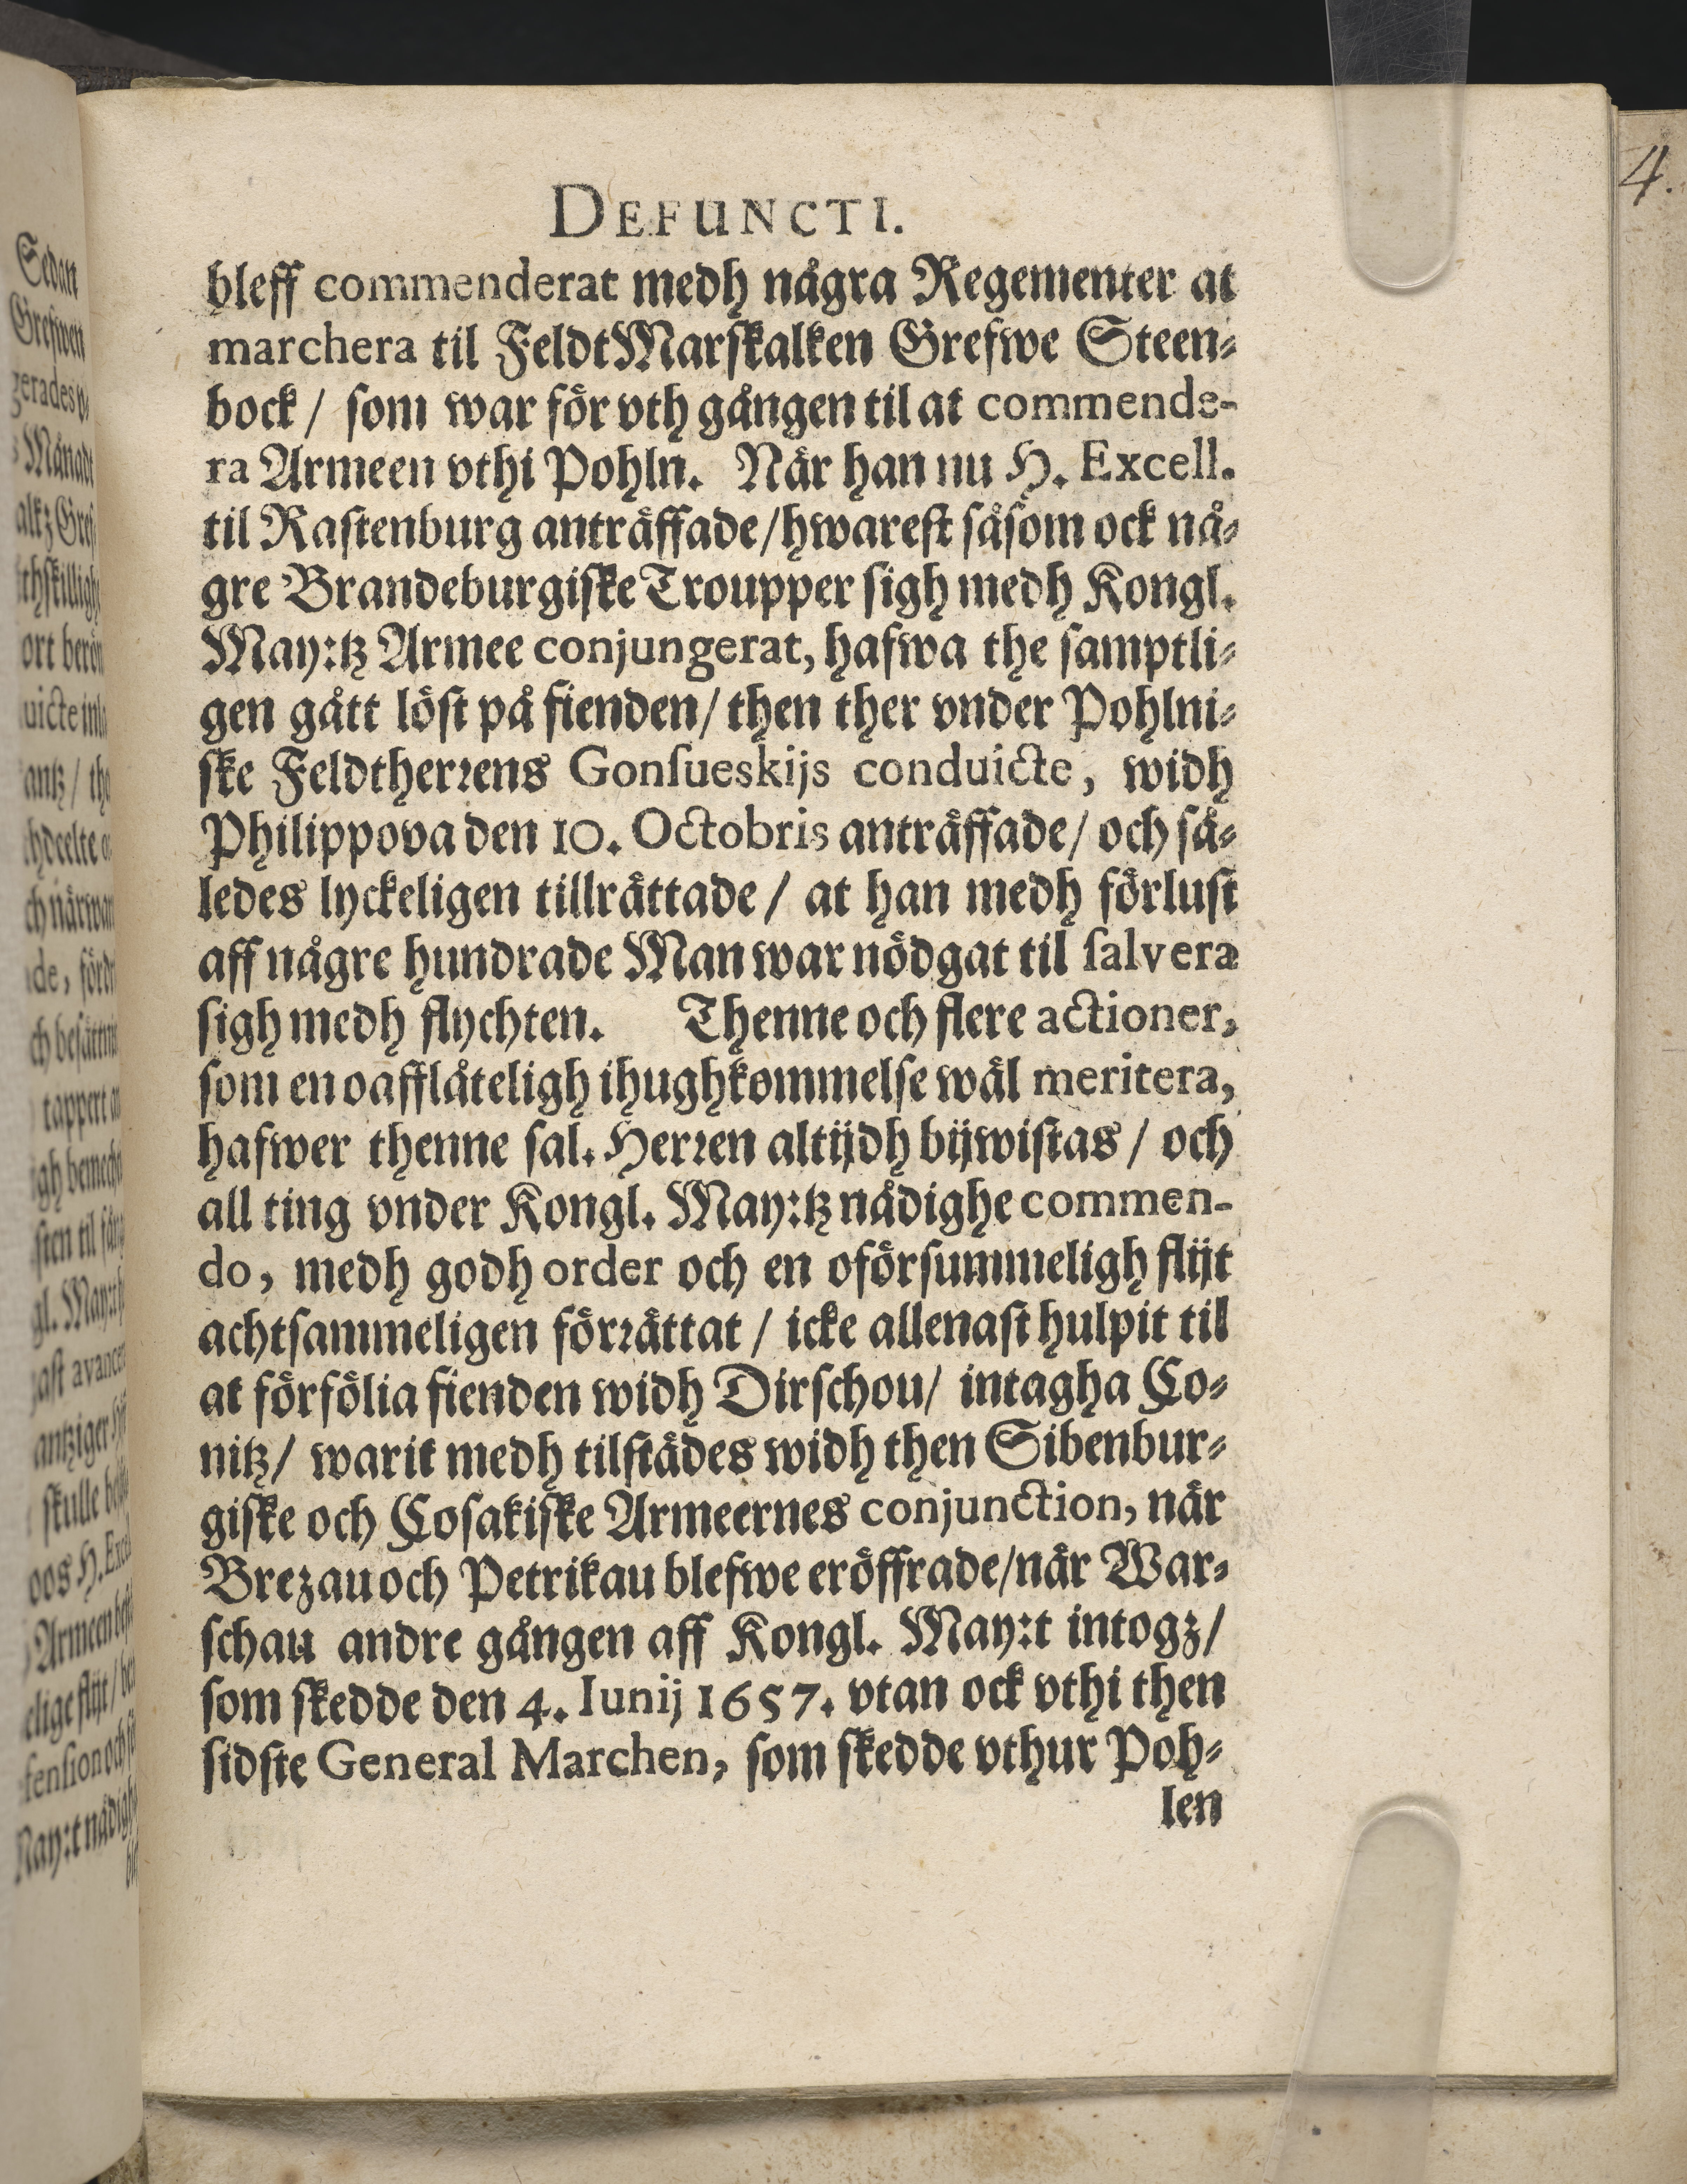 4.
DEFUNCTI.
bleff commenderat medh några Regementer at
marchera til FeldtMarskalken Grefwe Steen-
bock / som war för vth gången til at commende-
ra Armeen vthi Pohln. När han nu H. Excell.
til Rastenburg anträffade/hwarest såsom ock nå-
gre Brandeburgiske Troupper sigh medh Kongl.
May:tz Armee conjungerat, hafwa the samptli-
gen gått löst på fienden/ then ther vnder Pohlni-
ske Feldtherrens Gonsueskijs conduicte, widh
Philippova den 10. Octobris anträffade/ och så-
ledes lyckeligen tillrättade / at han medh förlust
aff någre hundrade Man war nödgat til salvera
sigh medh flychten. Thenne och flere actioner,
som en oafflåteligh ihughkommelse wäl meritera,
hafwer thenne sal. Herren altijdh bijwistas / och
all ting vnder Kongl. May:tz nådighe commen-
do, medh godh order och en oförsummeligh flijt
achtsammeligen förrättat / icke allenast hulpit til
at förfölia fienden widh Dirschou/ intagha Co-
nitz/ warit medh tilstädes widh then Sibenbur-
giske och Cosakiske Armeernes conjunction, när
Brezau och Petrikau blefwe eröffrade/när War-
schau andre gången aff Kongl. May:t intogz/
som skedde den 4. Iunij 1657. vtan ock vthi then
sidste General Marchen, som skedde vthur Poh-
len